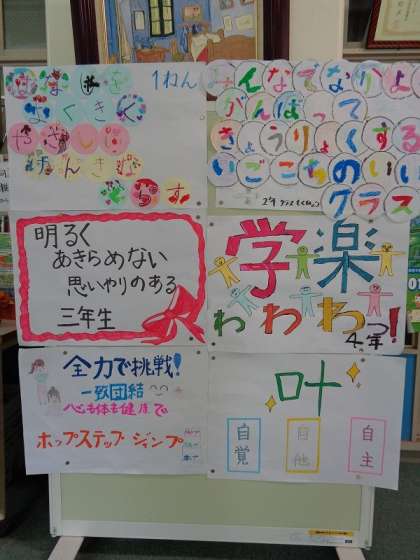 1ねん
はなしを
よくきく
やさしい
げんきな
くらす
みんなでなかよく
がんばって
きょうりょくする
いごこちのいい
クラス
2年 クラスもくひょう
明るく
あきらめない
思いやりのある
三年生
学楽
わわわ!
4年
全力で挑戦!
一致団結
心も体も健康で
ホップステップジャンプ
叶
自覚
自他
自主